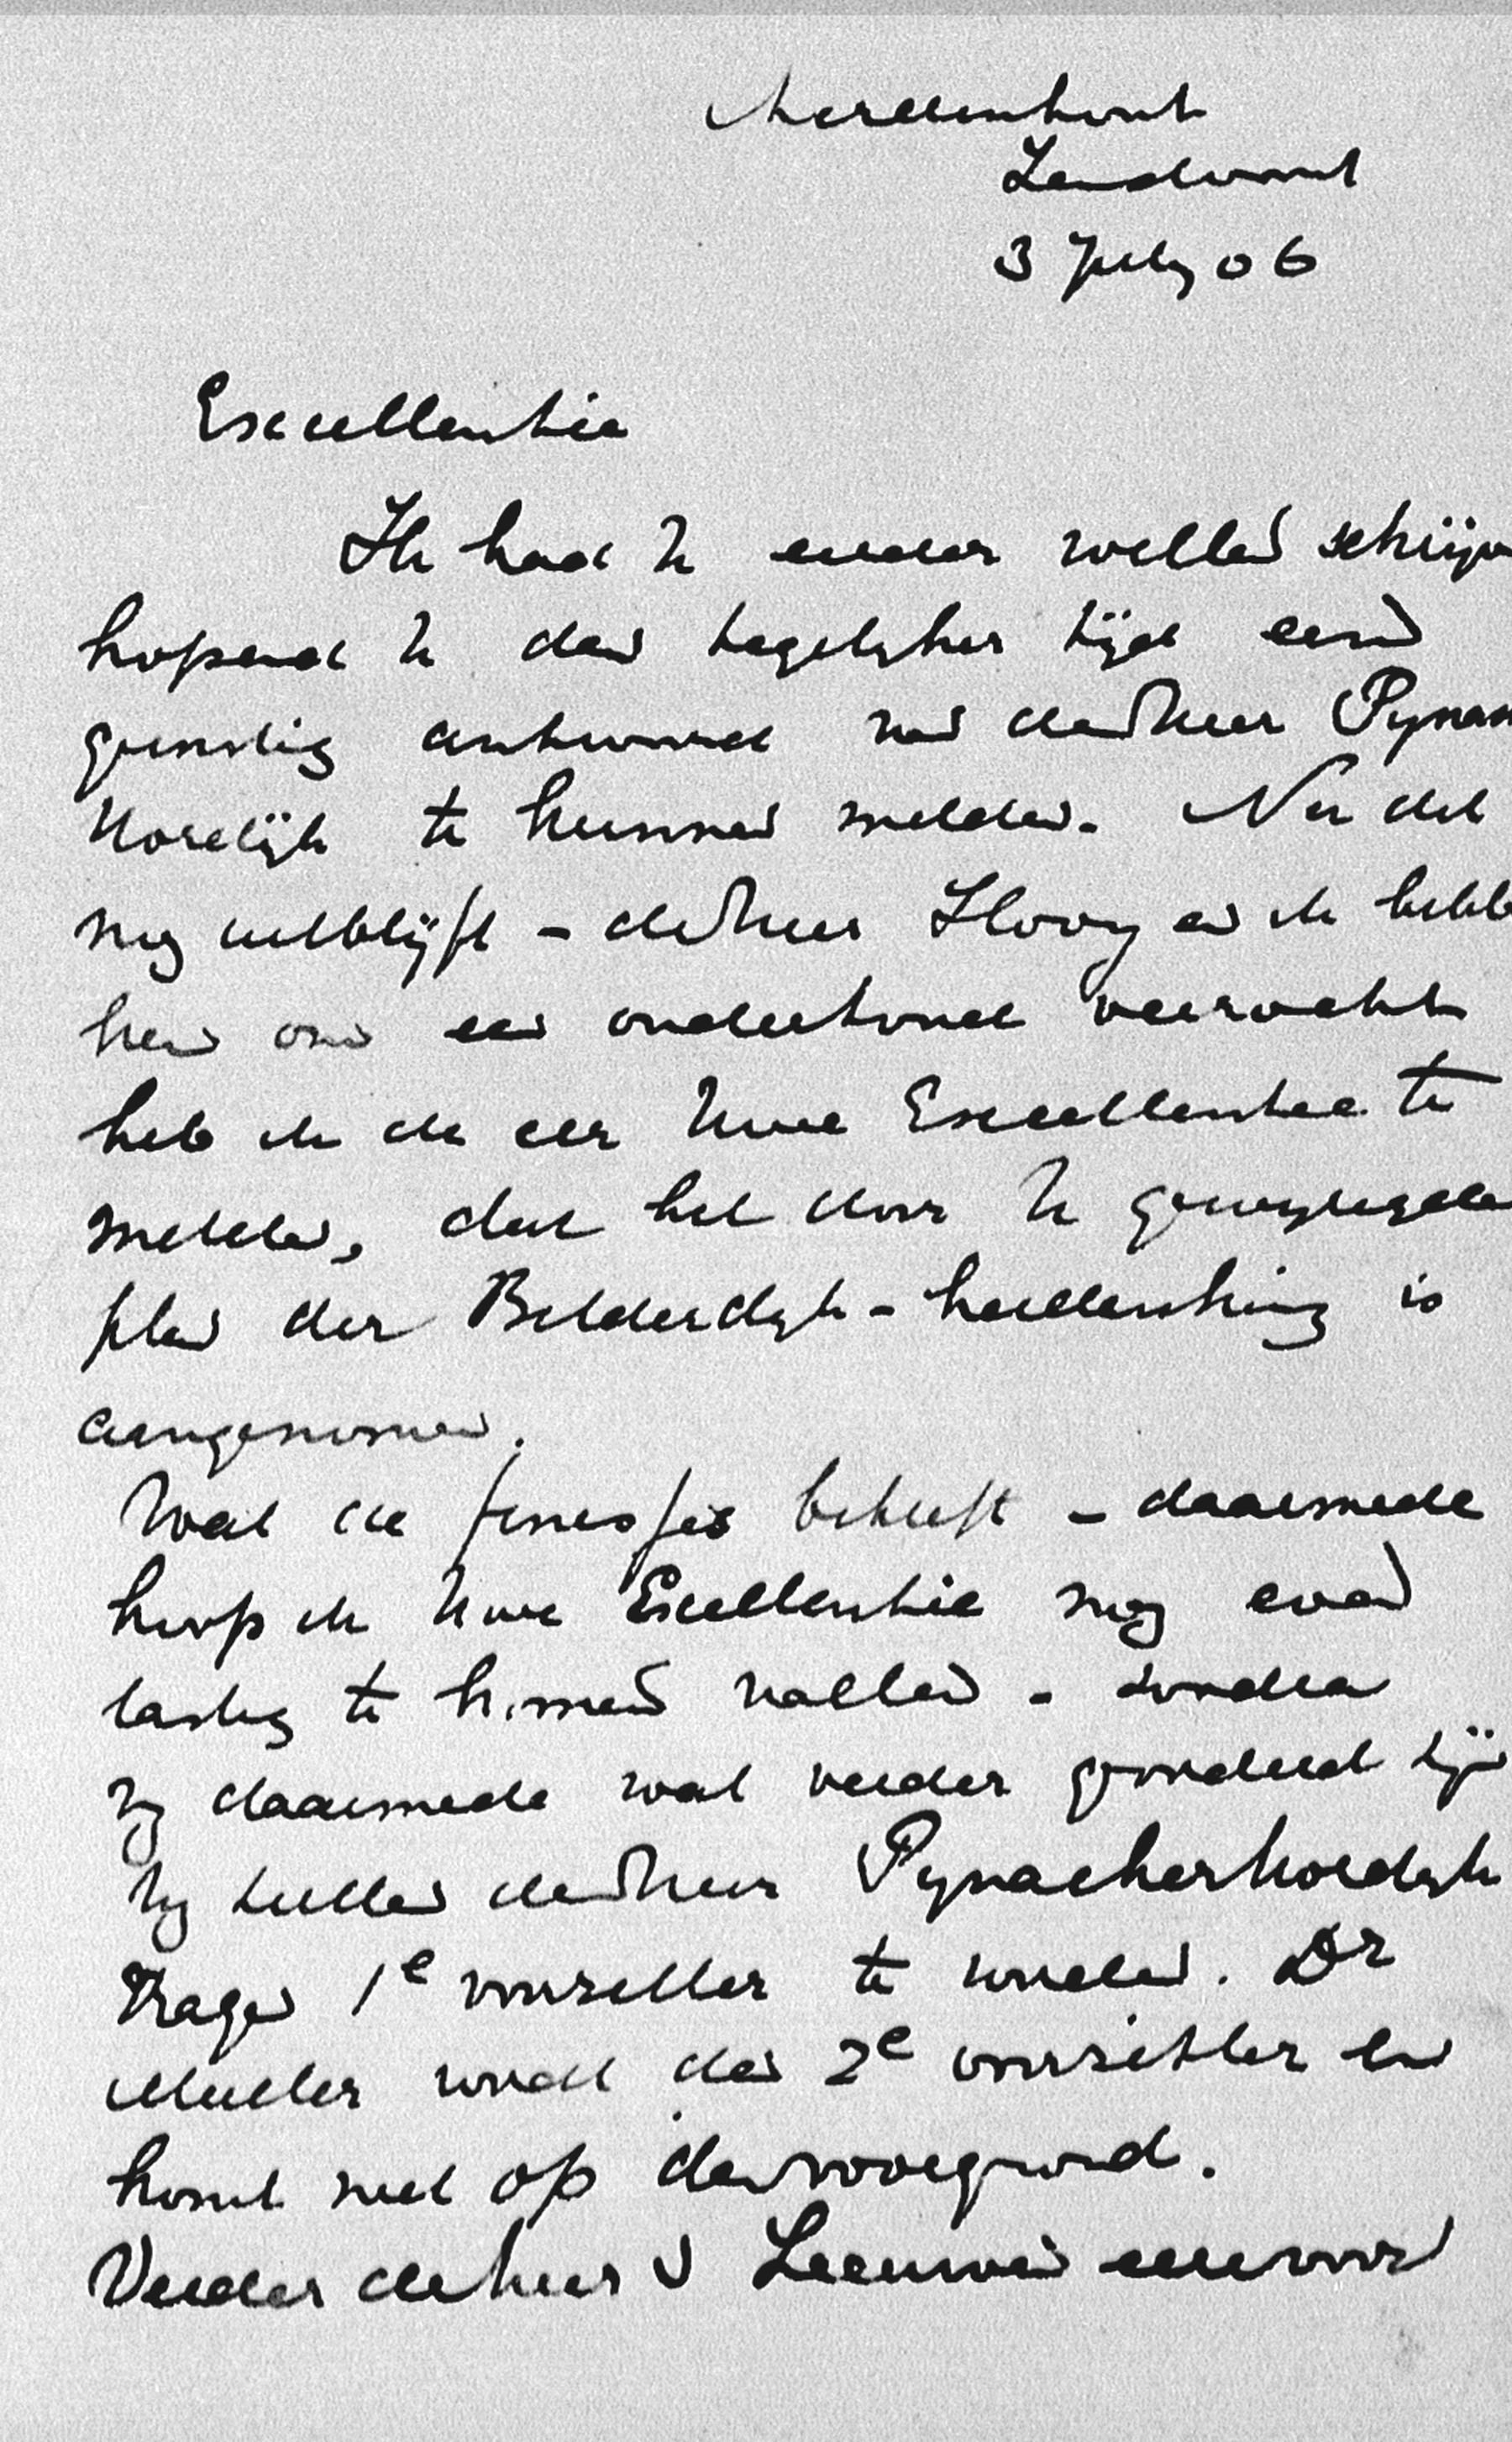 Aerdenhout
Zandvoort
3 July 06
Excellentie
Ik had U eerder willen schrijv
hopend U dan tegelyker tijd een
gunstig antwoord van den Heer Pynac
Hordijk te kunnen melden. Nu dit
nog uitblijft - de Heer Hooy en ik hebb
hem om een onderhoud verzocht
heb ik de eer Uwe Excellentie te
melden, dat het door U
plan der Bilderdyk-herdenking is
aangenomen.
Wat de betreft - daarmede
hoop ik Uwe Excellentie nog even
lastig te kunnen vallen - zoodra
wy daarmede wat verder gevorderd zijn
Wy zullen den Heer Pynacker Hordyk
vragen 1e voorzitter te worden. Dr
Muller wordt dan 2e voorzitter en
komt niet op den voorgrond.
Verder de heer v Leeuwen